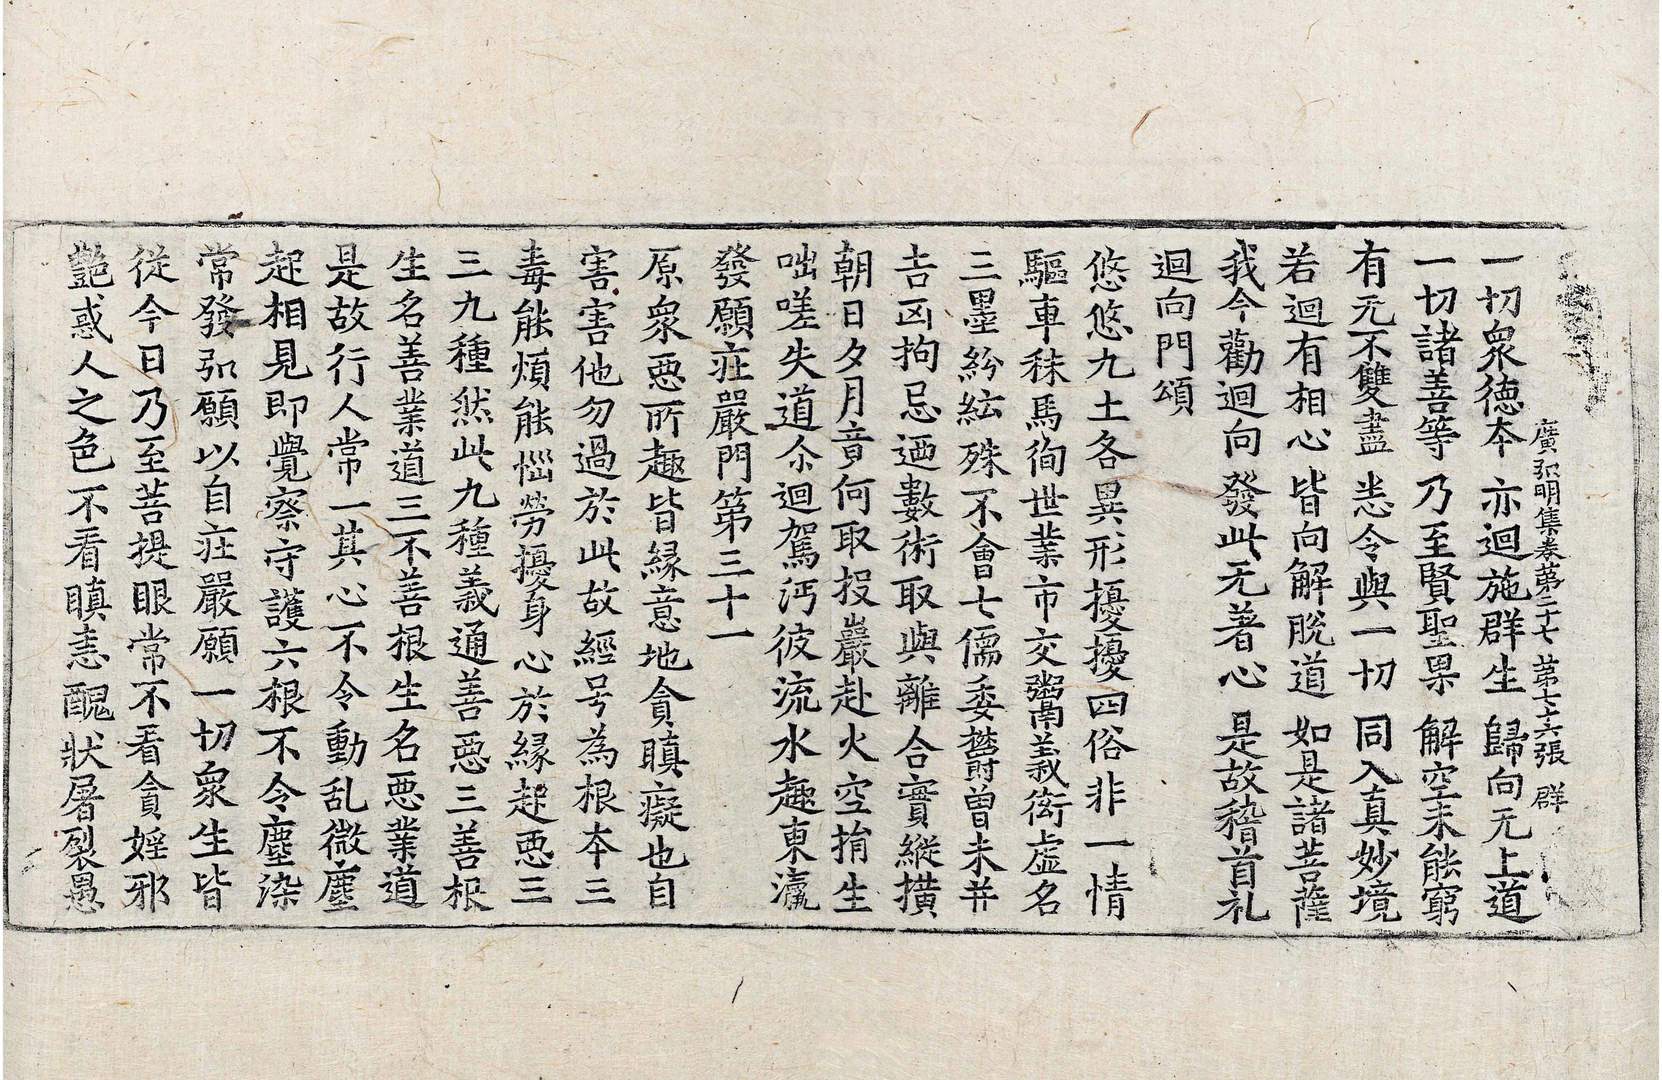 廣弘明集卷第二十七 第七六張 群
一切衆德本 亦迴施群生 歸向无上道
一切諸善等 乃至賢聖果 解空未能窮
有无不雙盡 恙令與一切 同入真妙境
若迴有相心 皆向解脫道 如是諸菩薩
我今勸迴向 發此无著心 是故稽首礼
迴向門頌
悠悠九土各異形擾擾四俗非一情
驅車秣馬徇世業市交鬻義衒虛名
三墨紛紜殊不會七儒委欝曽未并
吉凶拘忌迺數術取與離合實縱撗
朝日夕月竟何取投巖赴火空捐生
咄嗟失道尒迴駕沔彼流水趣東瀛
發願荘嚴門第三十一
原衆惡所趣皆縁意地貪瞋癡也自
害害他勿過於此故經号為根本三
毒能煩能惱勞擾身心於縁起惡三
三九種然此九種義通善惡三善根
生名善業道三不善根生名惡業道
是故行人常一其心不令動乱微塵
起相見即覺察守護六根不令塵染
常發弘願以自荘嚴願一切衆生皆
從今日乃至菩提眼常不看貪婬邪
艶惑人之色不看瞋恚醜狀屠裂愚